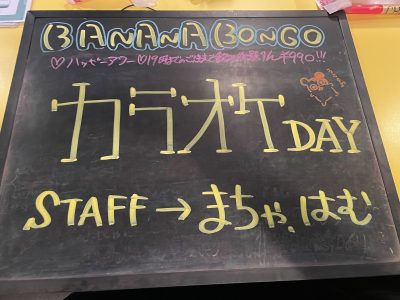 BANANA BONGO
♡ハッピーアワー♡19時までのご注文で飲み放題1h ¥990!!!
カラオケDAY
STAFF→まちゃ、はむ